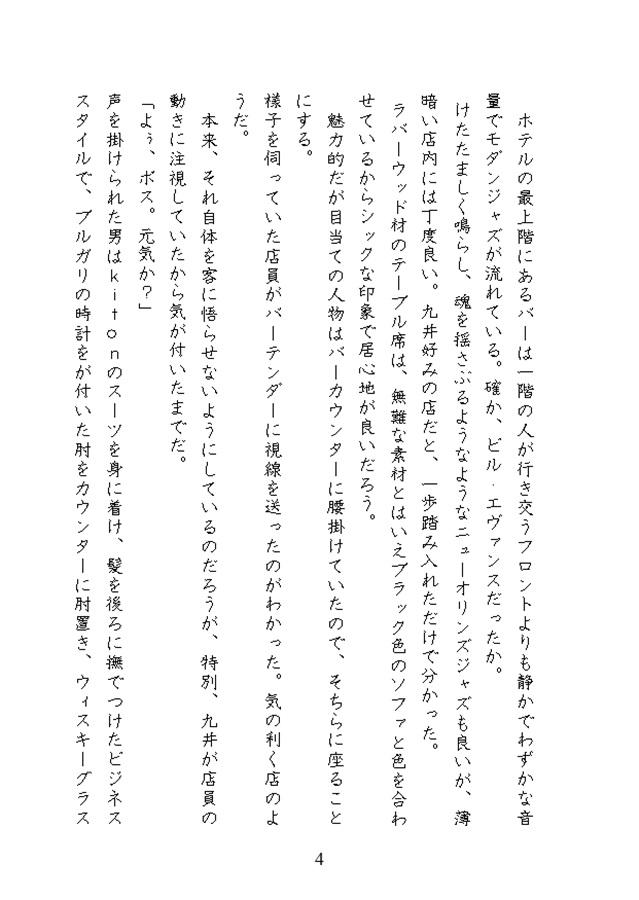 ホテルの最上階にあるバーは一階の人が行き交うフロントよりも静かでわずかな音
量でモダンジャズが流れている。確か、ビル・エヴァンスだったか。
けたたましく鳴らし、魂を揺さぶるようなようなニューオリンズジャズも良いが、薄
暗い店内には丁度良い。九井好みの店だと、一歩踏み入れただけで分かった。
ラバーウッド材のテーブル席は、無難な素材とはいえブラック色のソファと色を合わ
せているからシックな印象で居心地が良いだろう。
魅力的だが目当ての人物はバーカウンターに腰掛けていたので、そちらに座ること
にする。
様子を伺っていた店員がバーテンダーに視線を送ったのがわかった。気の利く店のよ
うだ。
本来、それ自体を客に悟らせないようにしているのだろうが、特別、九井が店員の
動きに注視していたから気が付いたまでだ。
「よぅ、ボス。元気か？」
声を掛けられた男はkitonのスーツを身に着け、髪を後ろに撫でつけたビジネス
スタイルで、ブルガリの時計をが付いた肘をカウンターに肘置き、ウィスキーグラス
4